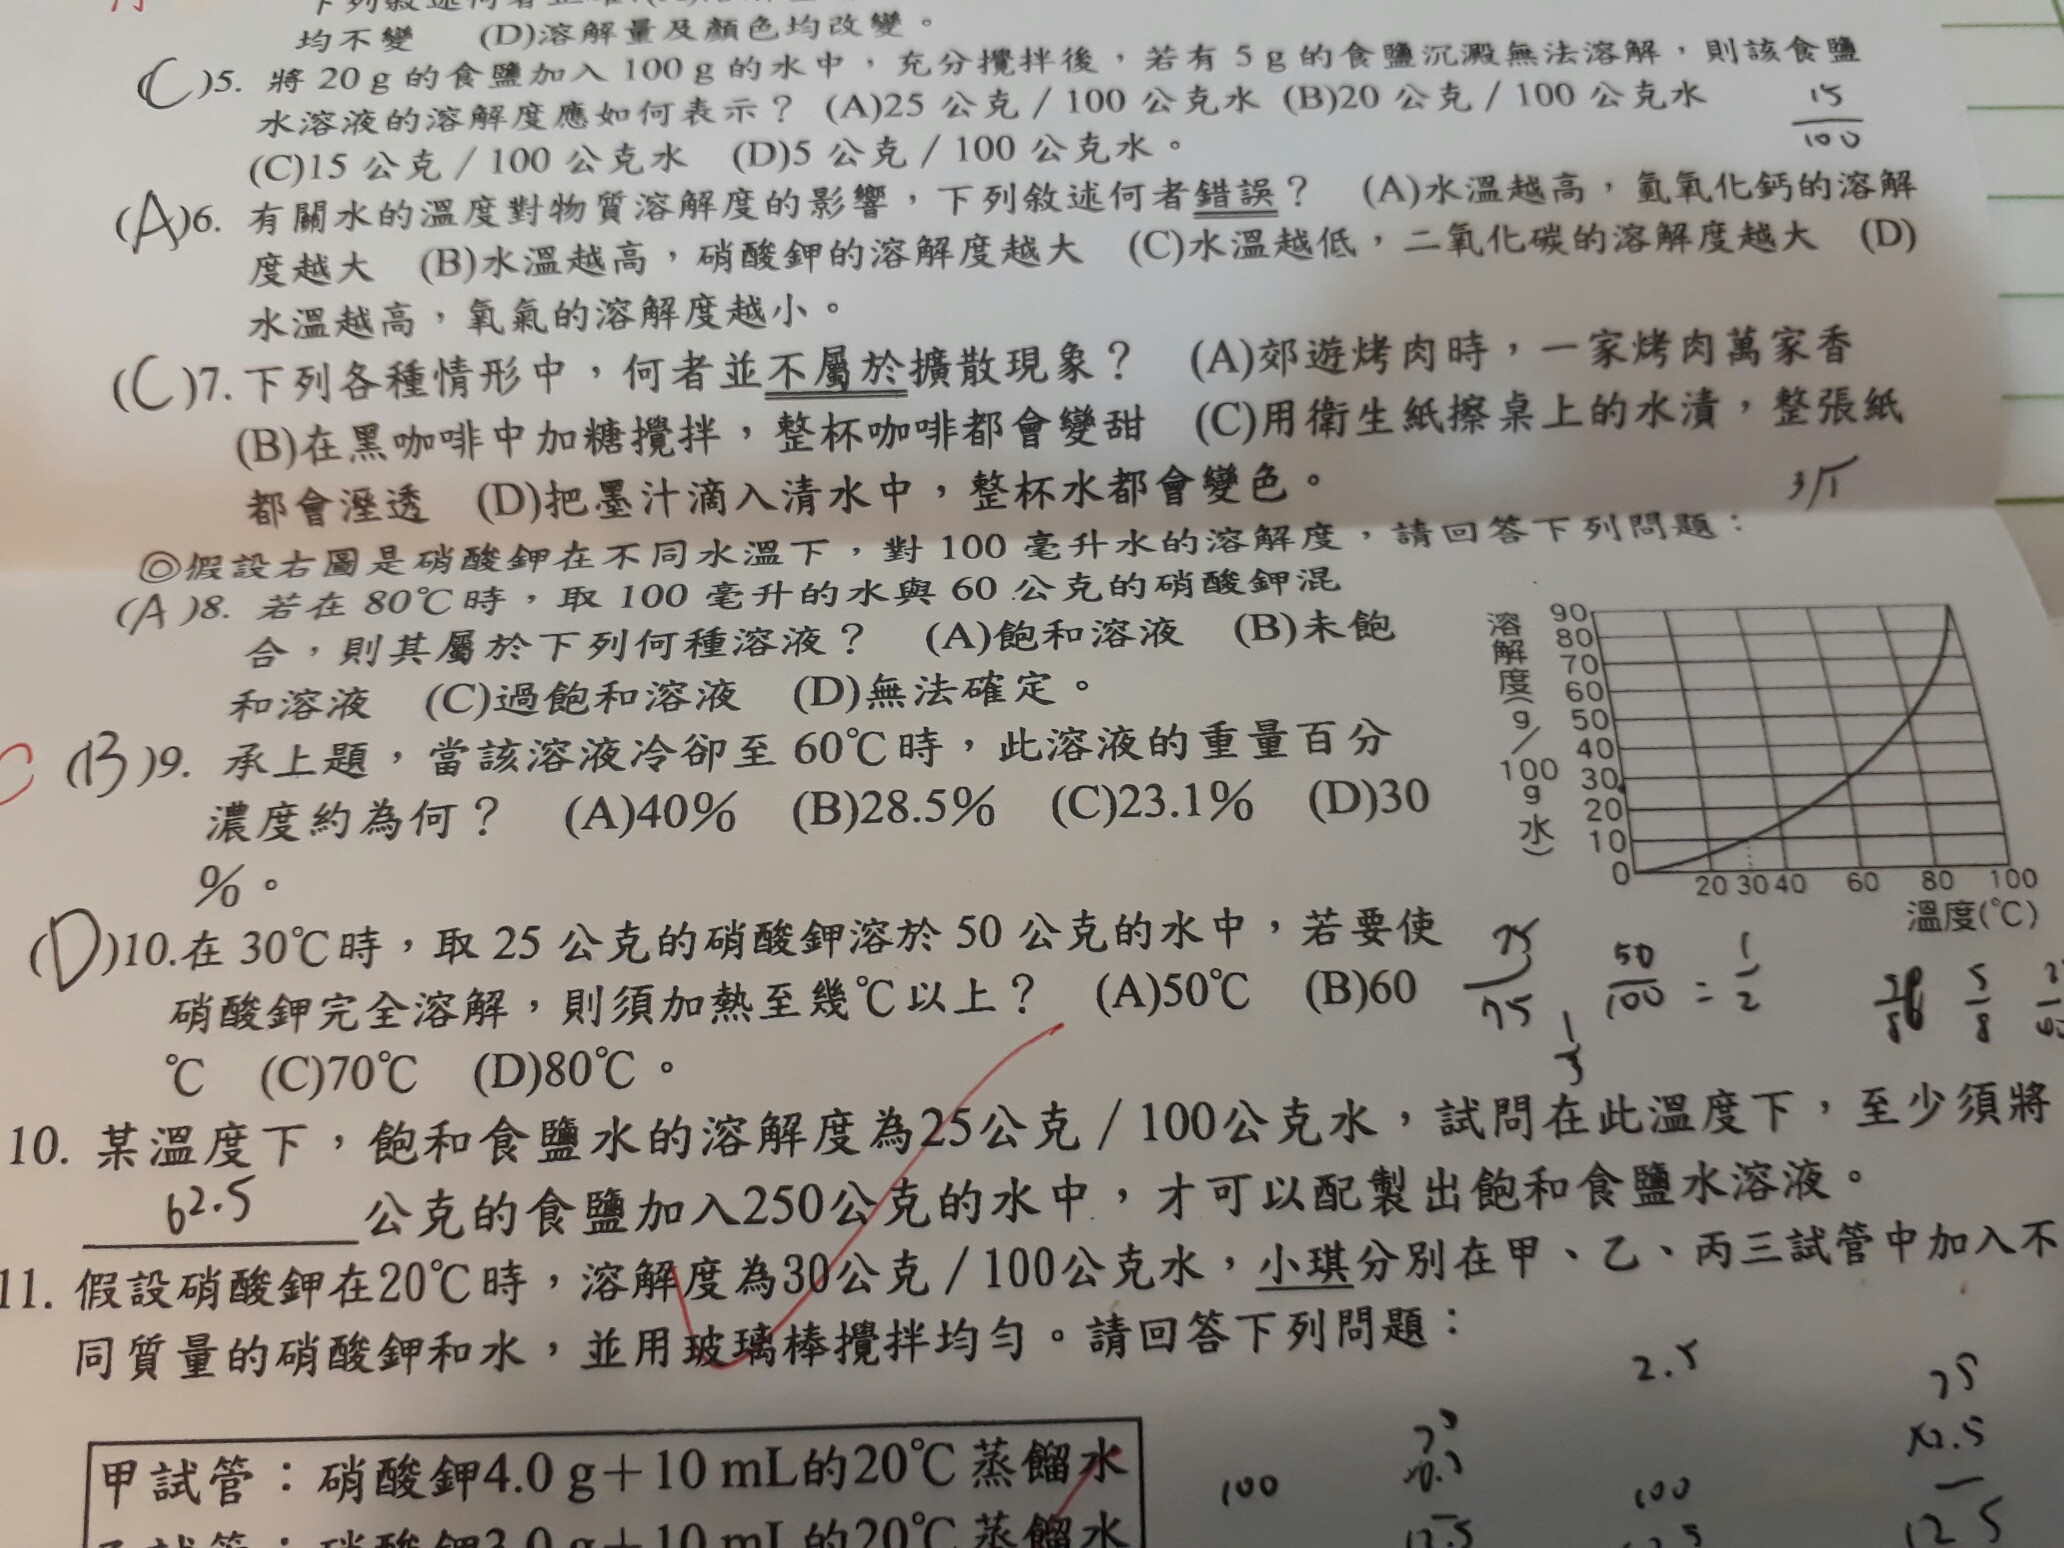 均不變　(D)溶解量及顏色均改變。
(C)5. 將 20 g 的食鹽加入 100 g 的水中，充分攪拌後，若有 5 g 的食鹽沉澱無法溶解，則該食鹽
水溶液的溶解度應如何表示？ (A)25 公克／100 公克水 (B)20 公克／100 公克水
15
100
(C)15 公克／100 公克水　(D)5 公克／100 公克水。
(A)6. 有關水的溫度對物質溶解度的影響，下列敘述何者錯誤？　(A)水溫越高，氫氧化鈣的溶解
度越大　(B)水溫越高，硝酸鉀的溶解度越大　(C)水溫越低，二氧化碳的溶解度越大　(D)
水溫越高，氧氣的溶解度越小。
(C)7.下列各種情形中，何者並不屬於擴散現象？　(A)郊遊烤肉時，一家烤肉萬家香
(B)在黑咖啡中加糖攪拌，整杯咖啡都會變甜　(C)用衛生紙擦桌上的水漬，整張紙
都會溼透　(D)把墨汁滴入清水中，整杯水都會變色。
◎假設右圖是硝酸鉀在不同水溫下，對 100 毫升水的溶解度，請回答下列問題：
(A)8. 若在 80℃時，取 100 毫升的水與 60 公克的硝酸鉀混
合，則其屬於下列何種溶液？　(A)飽和溶液　(B)未飽
和溶液　(C)過飽和溶液　(D)無法確定。
C (B)9. 承上題，當該溶液冷卻至 60℃時，此溶液的重量百分
濃度約為何？　(A)40%　(B)28.5%　(C)23.1%　(D)30
%。
溶解度(g／100g水)
90
80
70
60
50
40
30
20
10
0
20 30 40 60 80 100
溫度(℃)
(D)10.在 30℃時，取 25 公克的硝酸鉀溶於 50 公克的水中，若要使
硝酸鉀完全溶解，則須加熱至幾℃以上？　(A)50℃　(B)60
℃　(C)70℃　(D)80℃。
75
1
3
50
100
=
1
2
5
8
10. 某溫度下，飽和食鹽水的溶解度為25公克／100公克水，試問在此溫度下，至少須將
62.5 公克的食鹽加入250公克的水中，才可以配製出飽和食鹽水溶液。
11. 假設硝酸鉀在20℃時，溶解度為30公克／100公克水，小琪分別在甲、乙、丙三試管中加入不
同質量的硝酸鉀和水，並用玻璃棒攪拌均勻。請回答下列問題：
2.5
甲試管：硝酸鉀4.0 g＋10 mL的20℃蒸餾水
100
100
試管：硝酸鉀3.0 g＋10 mL的20℃蒸餾水
12.5